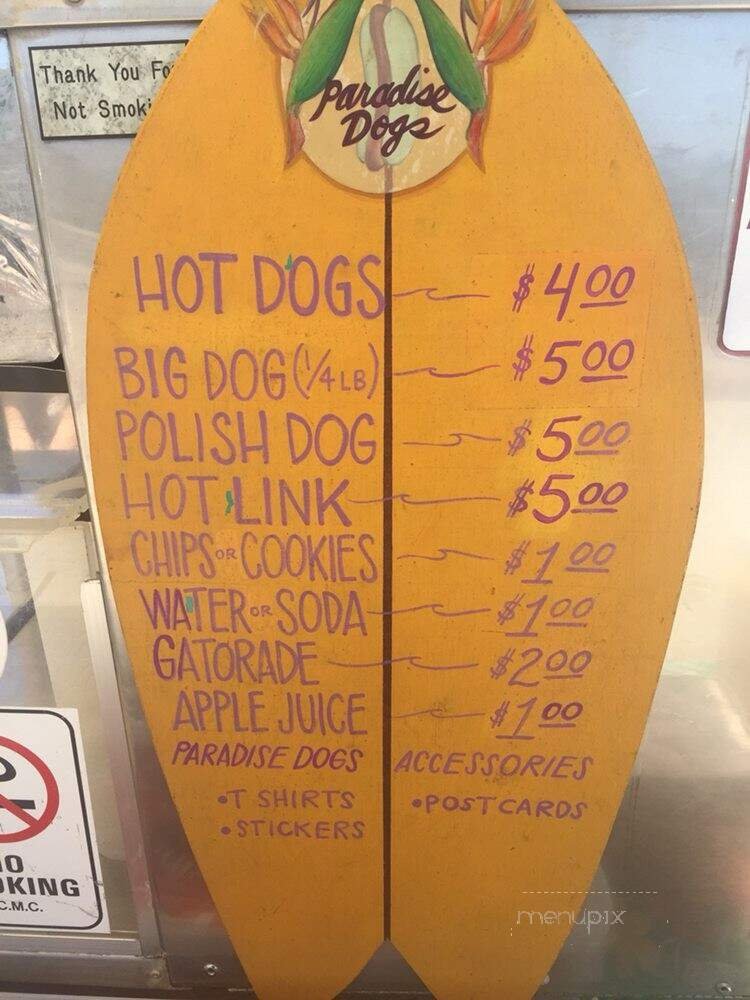 Thank You Fo
Not Smoki
Paradise
Dogs
HOT DOGS $4.00
BIG DOG (1/4 LB) $5.00
POLISH DOG $5.00
HOT LINK $5.00
CHIPS OR COOKIES $1.00
WATER OR SODA $1.00
GATORADE $2.00
APPLE JUICE $1.00
PARADISE DOGS ACCESSORIES
•T SHIRTS •POSTCARDS
•STICKERS
IO
OKING
C.M.C.
menupix